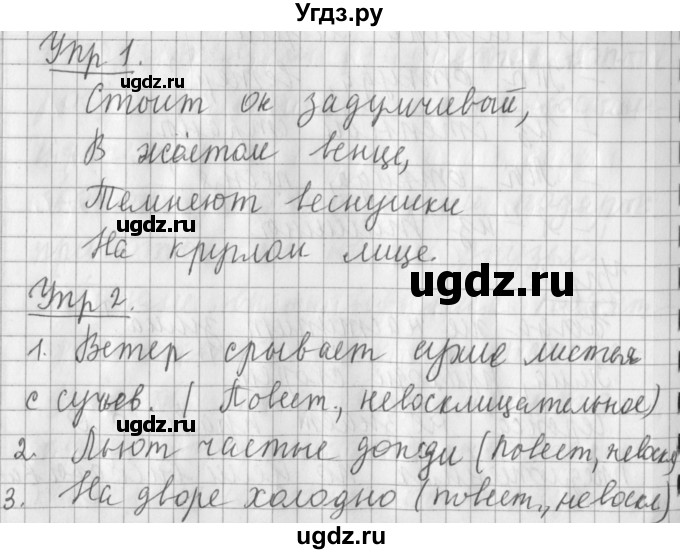 Угдз.ру
Упр 1.
Стоит он задумчивый,
В жёлтом венце,
Темнеют веснушки
На круглом лице.
Упр 2.
1. Ветер срывает сухие листья
с сучьев. (Повест., невосклицательное)
2. Льют частые дожди (повест, невоскл)
3. На дворе холодно (повест., невоскл)
ugdz.ru
ugdz.ru
ugdz.ru
ugdz.ru
ugdz.ru
ugdz.ru
ugdz.ru
ugdz.ru